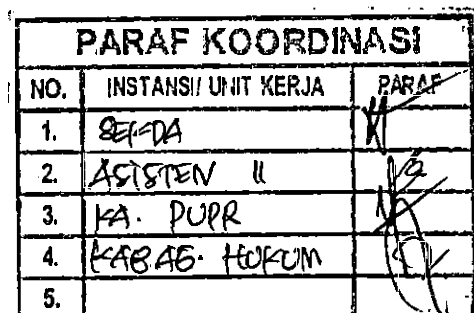 PARAF KOORDINASI
NO. INSTANSI/ UNIT KERJA PARAF
1. SEKDA
2. ASISTEN II
3. KA. PUPR
4. KABAG. HUKUM
5.